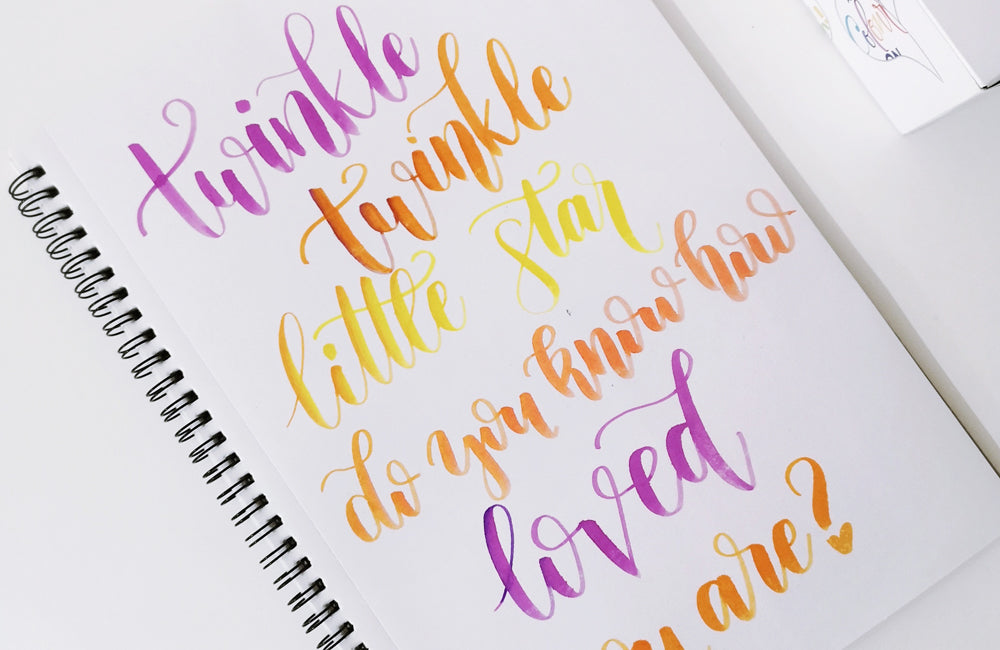 twinkle
twinkle
little star
do you know how
loved
are?